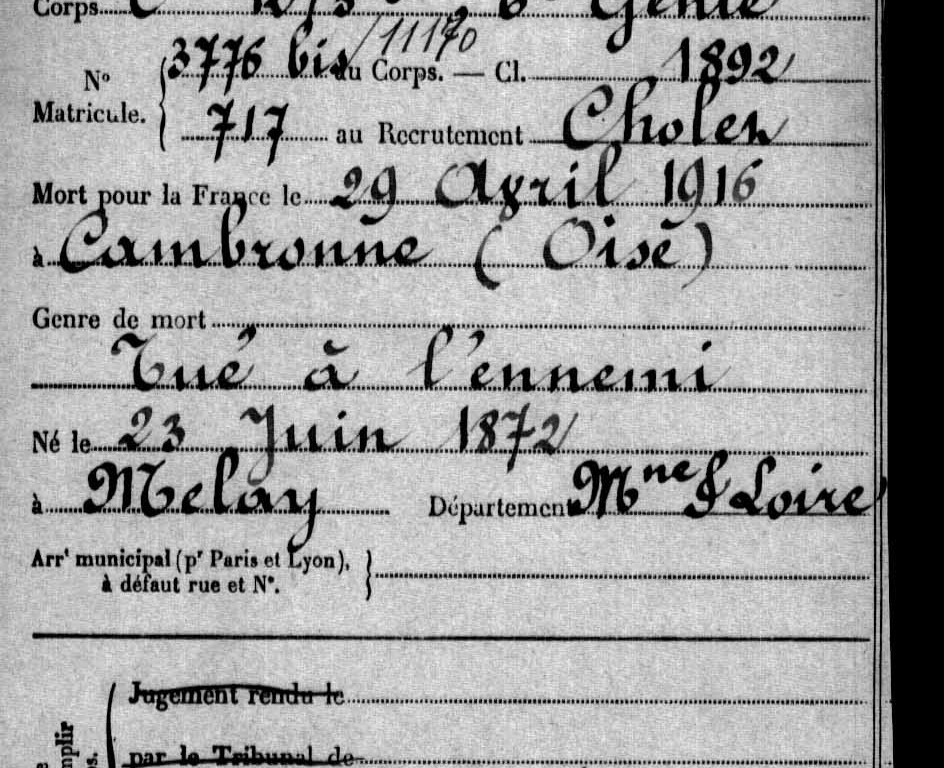 Corps. 6e Génie
3776 bis/11170 au Corps. — Cl. 1892
N°
Matricule.
717 au Recrutement Cholen
Mort pour la France le 29 Avril 1916
à Cambronne (Oise)
Genre de mort
Tué à l'ennemi
Né le 23 Juin 1872
à Melay Département Mne & Loire
Arrt municipal (pr Paris et Lyon),
à défaut rue et N°.
Jugement rendu le
par le Tribunal de